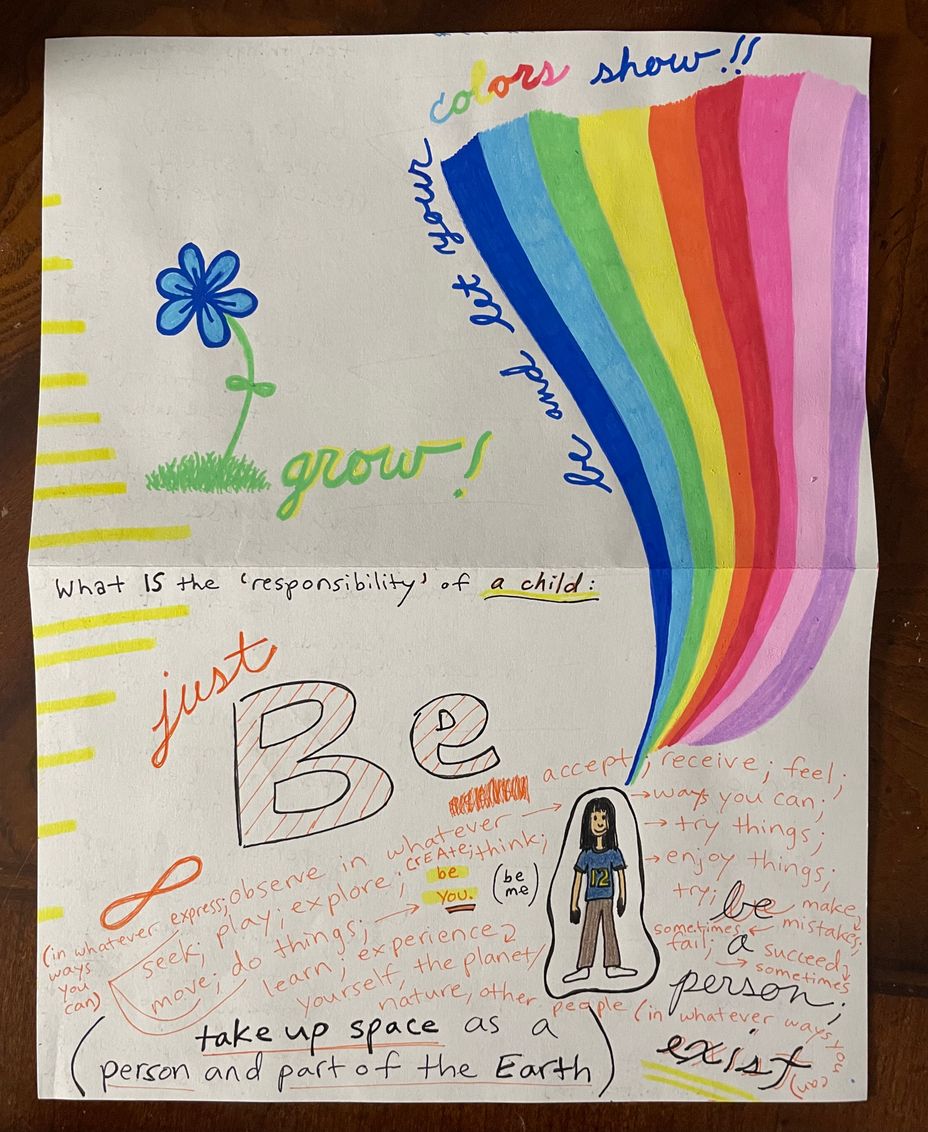 be and let your colors show!!
grow!
What IS the 'responsibility' of a child:
just
Be
accept; receive; feel;
observe in whatever → ways you can;
create; think;
→ try things;
→ enjoy things;
try; make mistakes;
sometimes fail;
→ succeed sometimes
be
a
person;
(in whatever ways you can)
express;
seek; play; explore;
move; do things; → be YOU.
(be me)
learn; experience
yourself, the planet/
nature, other people (in whatever ways you can)
12
(take up space as a
person and part of the Earth)
exist